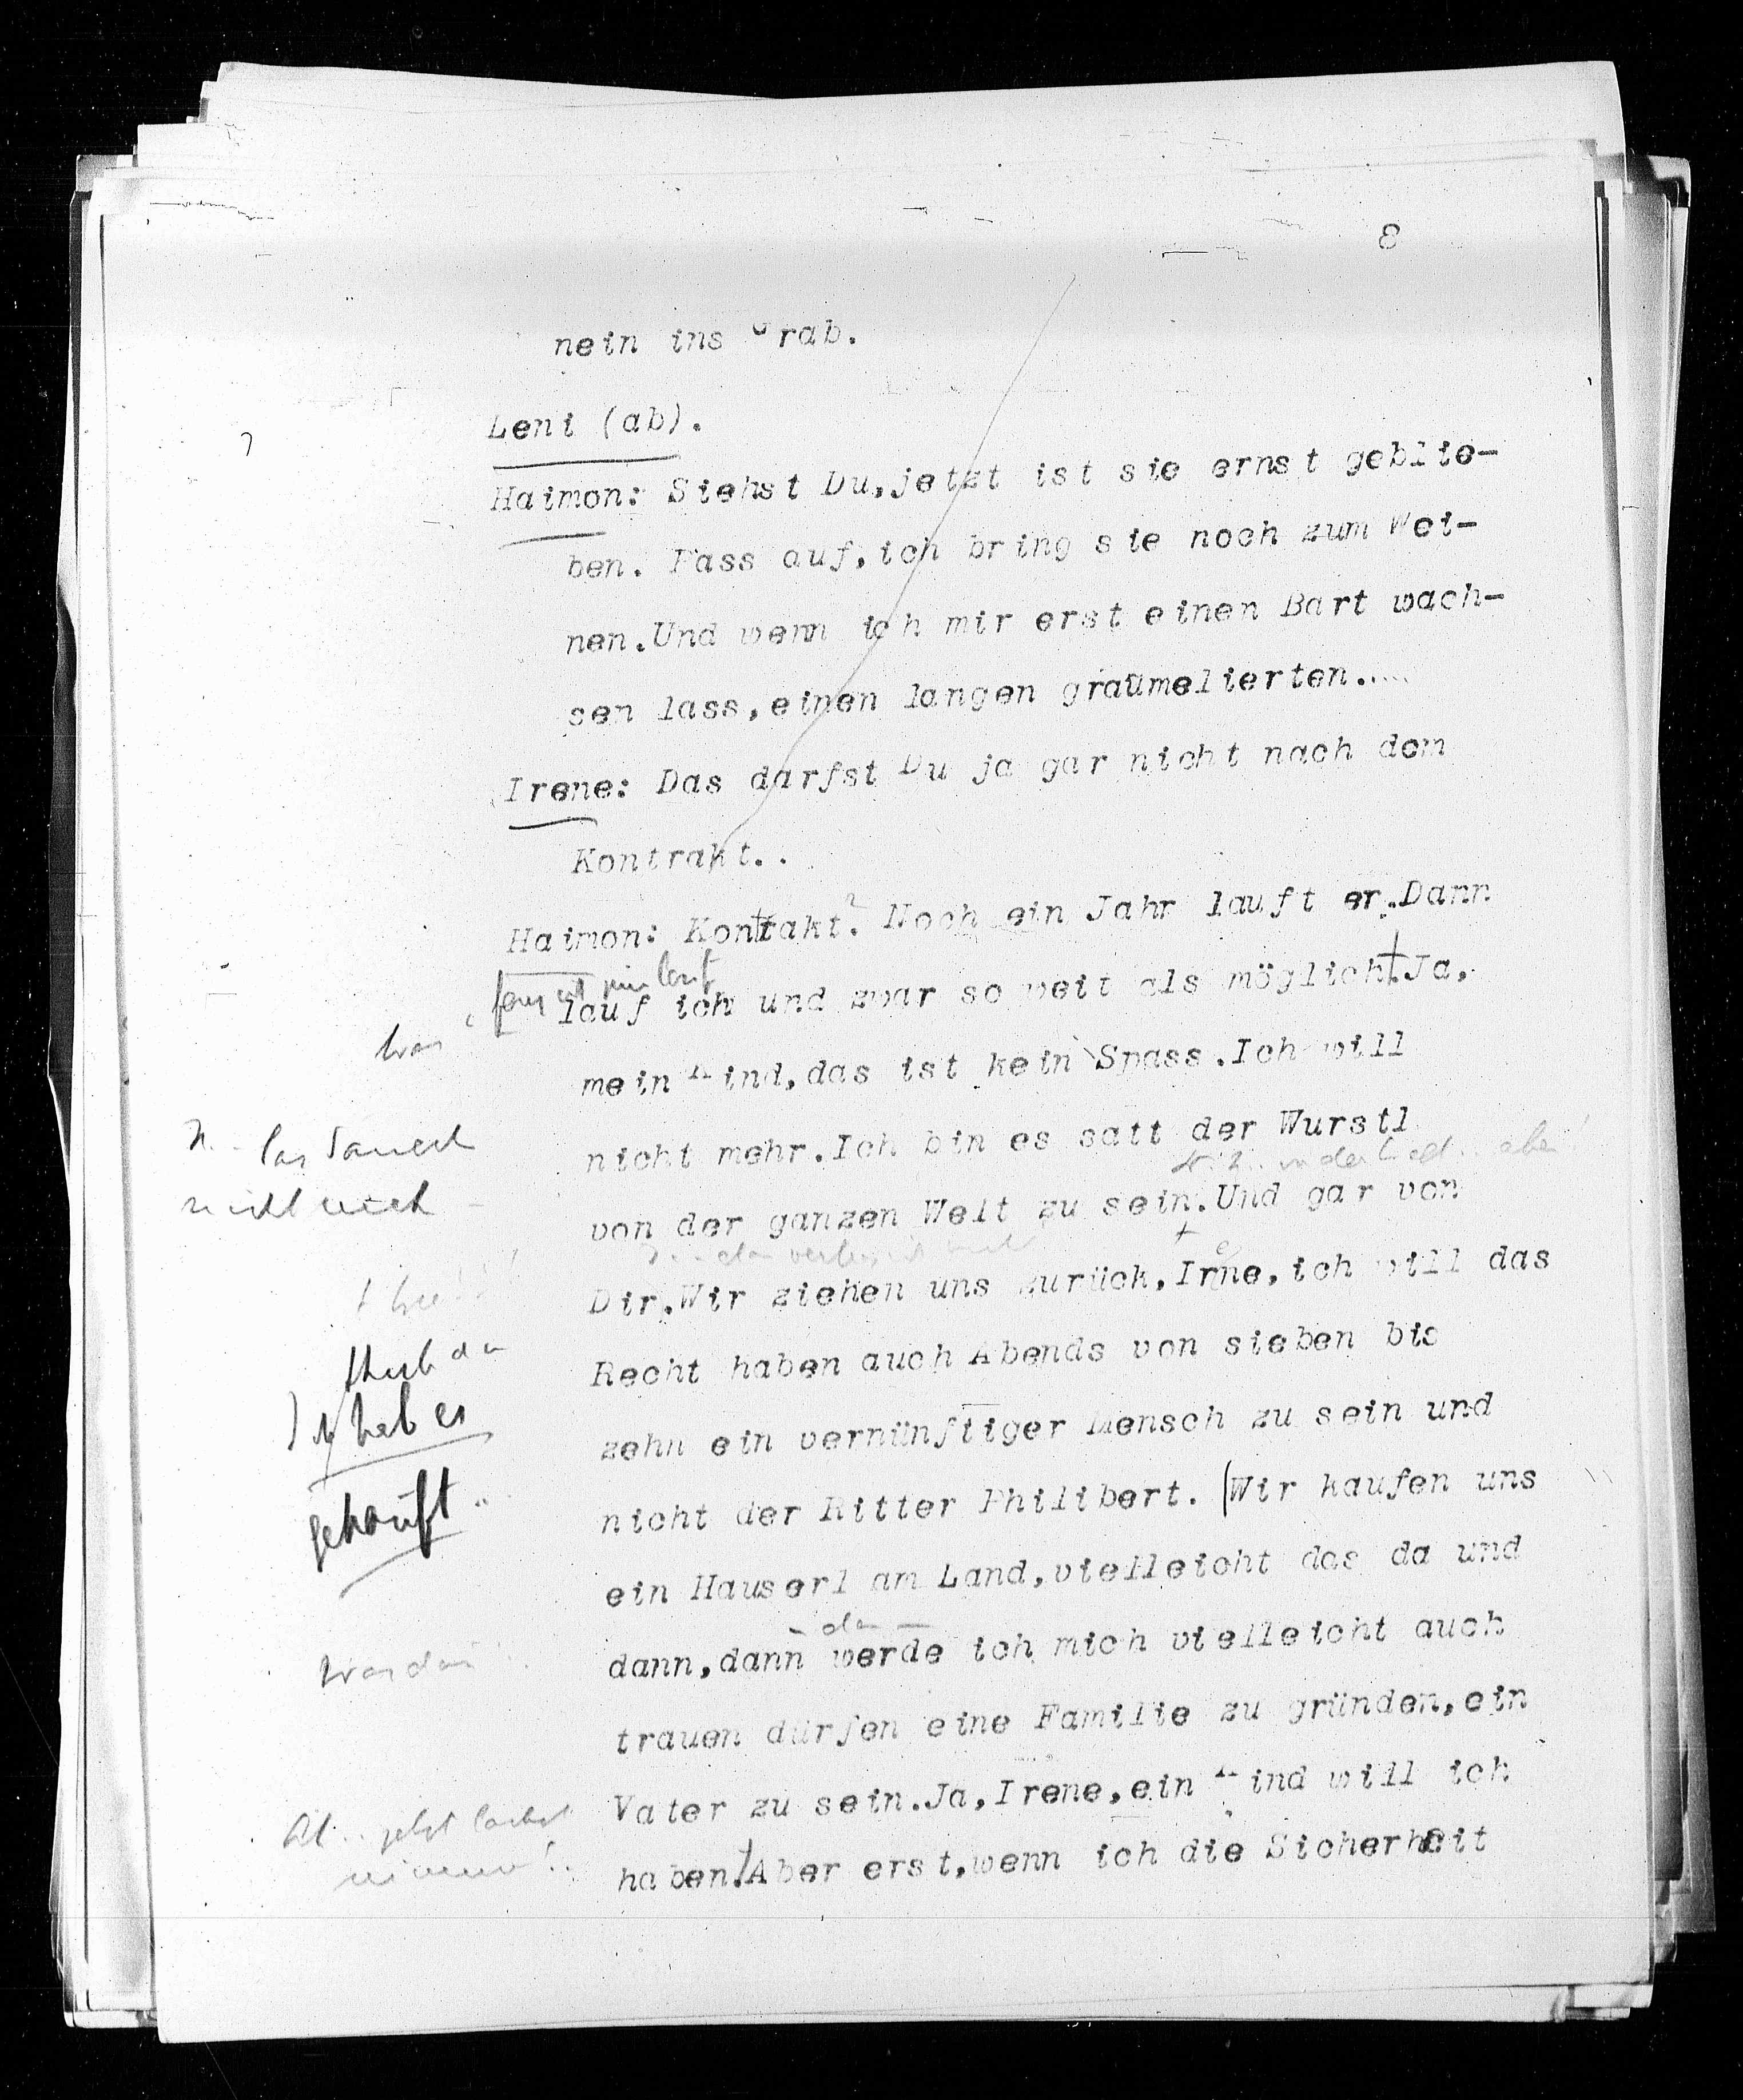 8
nein ins Grab.
Leni (ab).
Haimon: Siehst Du,jetzt ist sie ernst geblie-
ben. Pass auf,ich bring sie noch zum Wei-
nen.Und wenn ich mir erst einen Bart wach-
sen lass,einen langen graümelierten.....
Irene: Das darfst Du ja gar nicht nach dem
Kontrakt..
Haimon: Kontrakt? Noch ein Jahr lauft er.Dann
lauf ich und zwar so weit als möglich.Ja,
mein Kind,das ist kein Spass.Ich will
nicht mehr.Ich bin es satt der Wurstl
von der ganzen Welt zu sein.Und gar von
Dir.Wir ziehen uns zurück,Irene,ich will das
Recht haben auch Abends von sieben bis
zehn ein vernünftiger Mensch zu sein und
Ich hab es
nicht der Ritter Philibert. (Wir kaufen uns
gekauft..
ein Hauserl am Land,vielleicht das da und
dann,dann werde ich mich vielleicht auch
trauen dürfen eine Familie zu gründen,ein
Vater zu sein.Ja,Irene,ein Kind will ich
haben.Aber erst,wenn ich die Sicherheit